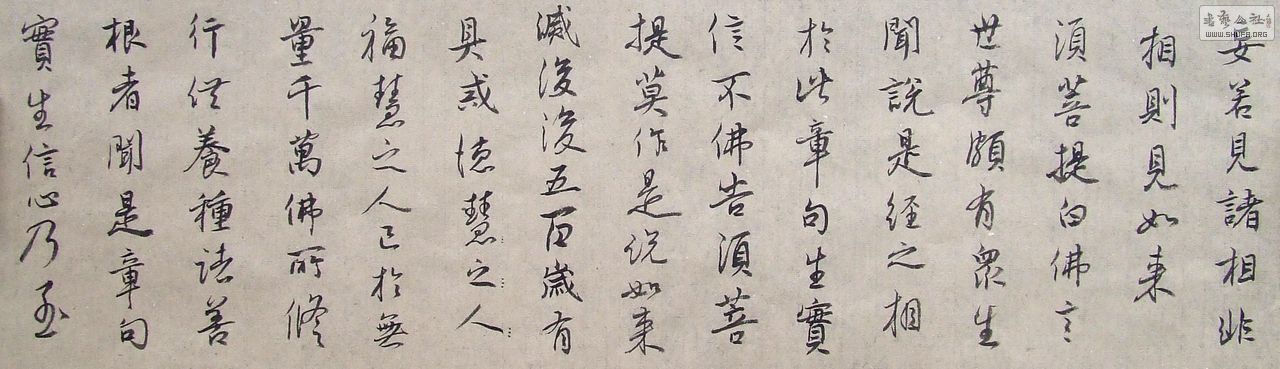 妄若見諸相非
相則見如来
須菩提白佛言
世尊頗有衆生
聞說是經之相
於此章句生實
信不佛告須菩
提莫作是说如来
滅後後五百歲有
具戒德慧之人
福慧之人已於無
量千萬佛所修
行供養種諸善
根者聞是章句
實生信心乃至
书艺公社
WWW.SHUFA.ORG